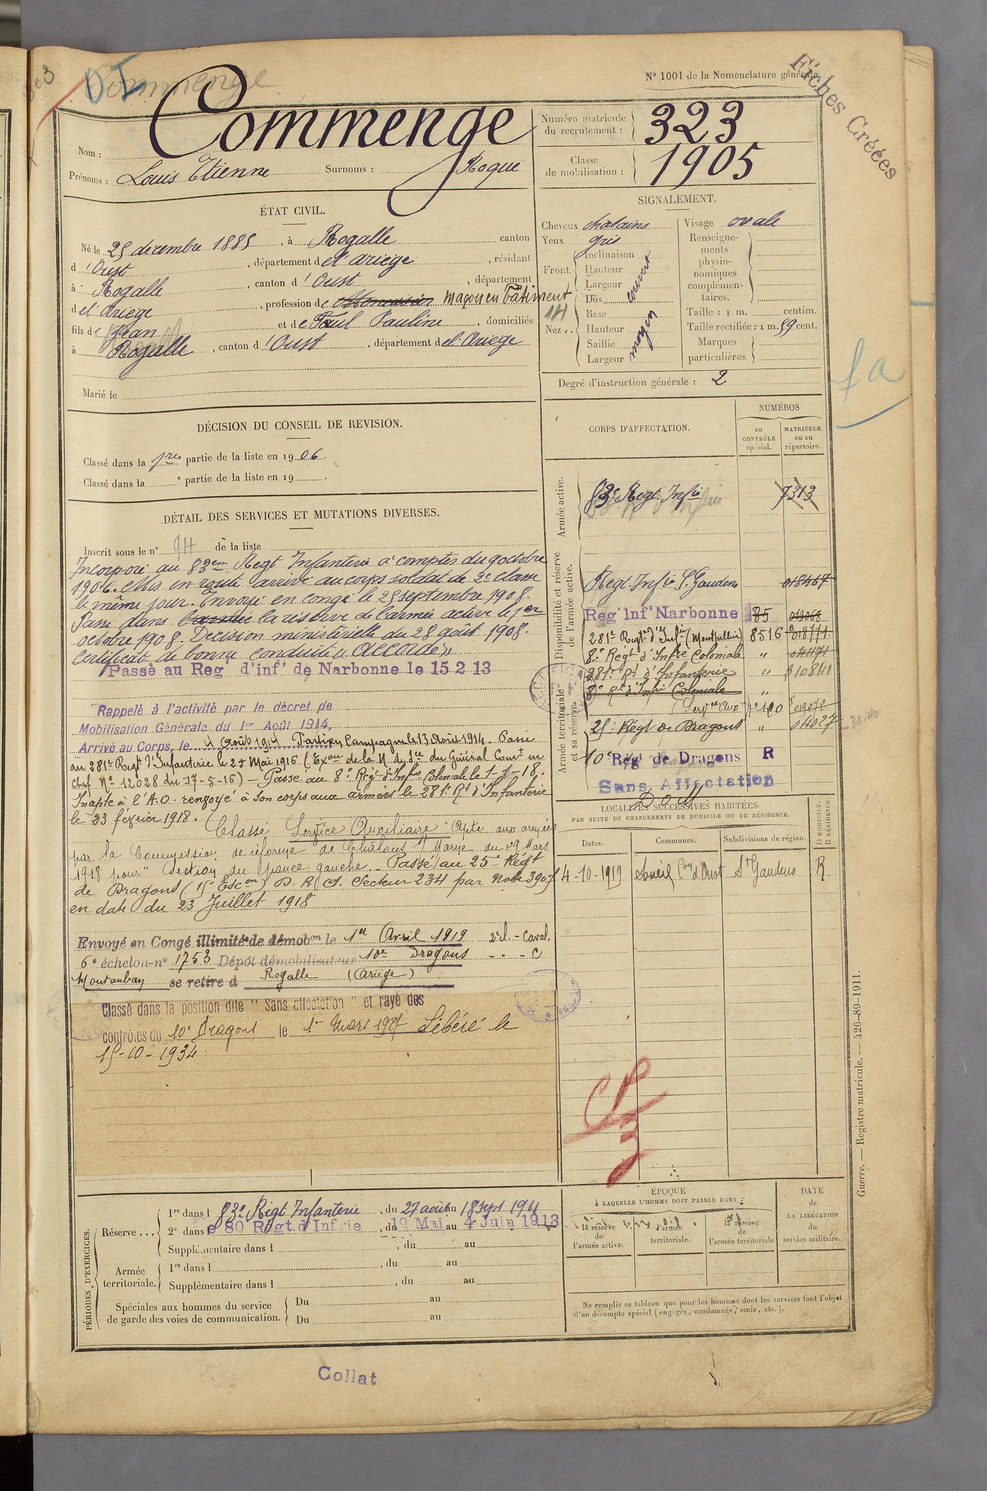 Commenge
N° 1001 de la Nomenclature générale.
Fiches Créées
Nom : Commenge
Prénoms : Louis Etienne Surnoms : Roque
Numéro matricule du recrutement : 323
Classe de mobilisation : 1905
ÉTAT CIVIL.
Né le 25 décembre 1885, à Rogalle canton
d'Oust, département de l'Ariège, résidant
à Rogalle, canton d'Oust, département
de l'Ariège, profession de Maçon en bâtiment
fils de Jean et de Faul Pauline, domiciliés
à Rogalle, canton d'Oust, département de l'Ariège
Marié le
SIGNALEMENT.
Cheveux chatains
Yeux gris
Front. Inclinaison
Hauteur
Largeur
couvert
Nez. Dos
Base
Hauteur
Saillie
Largeur
moyen
Visage ovale
Renseignements physionomiques complémentaires.
Taille : 1 m. centim.
Taille rectifiée : 1 m. 59 cent.
Marques particulières.
Degré d'instruction générale : 2
DÉCISION DU CONSEIL DE REVISION.
Classé dans la 1re partie de la liste en 1906.
Classé dans la e partie de la liste en 19 .
DÉTAIL DES SERVICES ET MUTATIONS DIVERSES.
Inscrit sous le n° 94 de la liste
Incorporé au 83ème Régt Infanterie à compter du 9 octobre
1906. Mis en route, arrivé au corps soldat de 2e classe
le même jour. Envoyé en congé le 25 septembre 1908.
Passé dans la réserve de l'armée active le 1er
octobre 1908. Décision ministérielle du 28 août 1908.
Certificat de bonne conduite "Accordé"
Passé au Reg' d'inf' de Narbonne le 15 2 13
Rappelé à l'activité par le décret de
Mobilisation Générale du 1er Août 1914,
Arrivé au Corps, le 4 Août 1914 Parti en Campagne le 13 Août 1914. Passé
au 281e Régt d'Infanterie le 27 Mai 1916
Passé au 8e Rég. d'Infie Coloniale le 1-1-18.
Inapte à l'A.O. renvoyé à son corps aux armées le 281e Rt d'Infanterie
le 23 février 1918. Classé Service Auxiliaire Apte aux armées
par la Commission de réforme de Châlons s/ Marne du 29 Mars
1918 pour Passé au 25e Régt
de Dragons Secteur 234 par Note 3907
en date du 23 Juillet 1918
Envoyé en Congé illimité de démobon le 1er Avril 1919
6e échelon n° 1753 Dépôt démobilisateur 10e Dragons
Montauban se retire à Rogalle (Ariège)
Classé dans la position dite "Sans affectation" et rayé des
contrôles du 10e Dragons le 1er Mars 1927 Libéré le
15-10-1934.
CORPS D'AFFECTATION.
NUMÉROS
au CONTRÔLE spécial.
MATRICULE ou au répertoire.
Armée active.
83e Régt. Infie 7313
Disponibilité et réserve de l'armée active.
Régt Infie St Gaudens
Reg' Inf' Narbonne 185
281e Régt d'Infie (Montpellier) 8516
8e Régt d'Infie Coloniale "
281e Rt d'Infanterie " 10841
8e Rt d'Infie Coloniale "
Armée territoriale et sa réserve.
25e Régt de Dragons "
10e Rég de Dragons R
Sans Affectation
LOCALITÉS SUCCESSIVES HABITÉES,
PAR SUITE DE CHANGEMENTS DE DOMICILE OU DE RÉSIDENCE.
Dates. Communes. Subdivisions de région. D DOMICILE. R RÉSIDENCE.
4-10-1919 Soueix Con d'Oust St Gaudens R.
PÉRIODES D'EXERCICES.
Réserve... 1re dans l 83e Régt Infanterie, du 27 août au 18 sept 1911
2e dans l e 80 Régt d'Infrie, du 19 Mai au 4 Juin 1913
Supplémentaire dans l , du au
Armée territoriale. 1re dans l , du au
Supplémentaire dans l , du au
Spéciales aux hommes du service de garde des voies de communication. Du au
Du au
ÉPOQUE
À LAQUELLE L'HOMME DOIT PASSER DANS :
la réserve de l'armée active.
l'armée territoriale.
la réserve de l'armée territoriale
DATE de LA LIBÉRATION du service militaire.
Ne remplir ce tableau que pour les hommes dont les services font l'objet
d'un décompte spécial (engagés, condamnés, omis, etc.).
Guerre. — Registre matricule. — 426-89-1911.
Collat